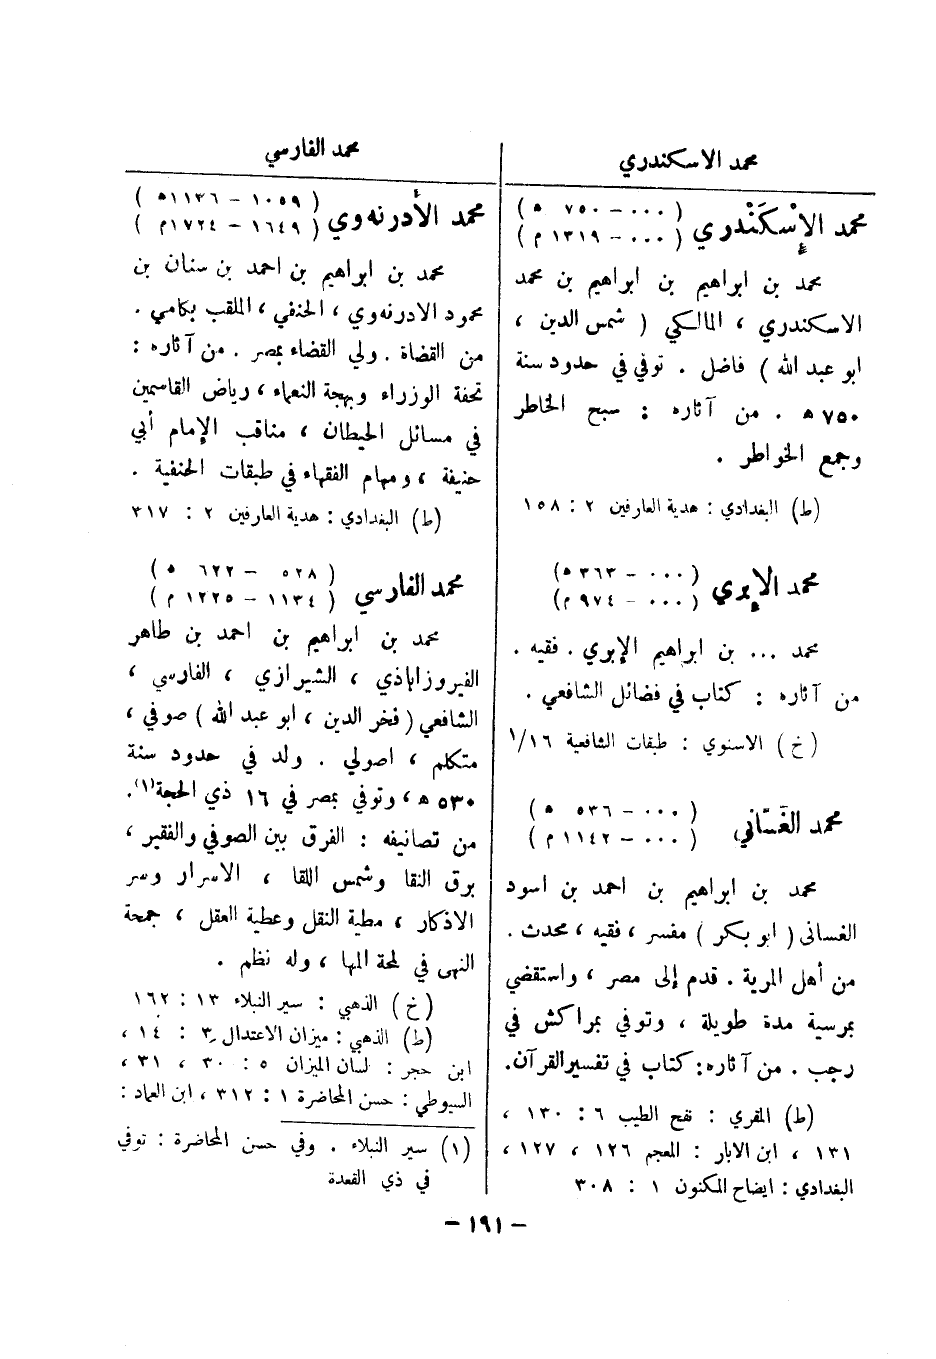 محمد الاسكندري
محمد الإِسْكَنْدري ( ٠٠٠ - ٧٥٠ ه )
( ٠٠٠ - ١٣١٩ م )
محمد بن ابراهيم بن ابراهيم بن محمد
الاسكندري ، المالكي ( شمس الدين ،
ابو عبد الله ) فاضل . توفي في حدود سنة
٧٥٠ ه . من آثاره : سبح الخاطر
وجمع الخواطر .
(ط) البغدادي : هدية العارفين ٢ : ١٥٨
محمد الإبري ( ٠٠٠ - ٣٦٣ ه )
( ٠٠٠ - ٩٧٤ م )
محمد ... بن ابراهيم الإبري . فقيه .
من آثاره : كتاب في فضائل الشافعي .
( خ ) الاسنوي : طبقات الشافعية ١٦/١
محمد الغَسّاني ( ٠٠٠ - ٥٣٦ ه )
( ٠٠٠ - ١١٤٢ م )
محمد بن ابراهيم بن احمد بن اسود
الغسانى ( ابو بكر ) مفسر ، فقيه ، محدث .
من أهل المرية . قدم إلى مصر ، واستقضي
بمرسية مدة طويلة ، وتوفي بمراكش في
رجب . من آثاره : كتاب في تفسير القرآن.
(ط) المقري : نفح الطيب ٦ : ١٣٠ ،
١٣١ ، ابن الابار : المعجم ١٢٦ ، ١٢٧ ،
البغدادي : ايضاح المكنون ١ : ٣٠٨
محمد الفارسي
محمد الأدرنه‌وي ( ١٠٥٩ - ١١٣٦ ه )
( ١٦٤٩ - ١٧٢٤ م )
محمد بن ابراهيم بن احمد بن سنان بن
محمود الادرنه‌وي ، الحنفي ، الملقب بكامي .
من القضاة . ولي القضاء بمصر . من آثاره :
تحفة الوزراء وبهجة النعماء ، رياض القاسمين
في مسائل الحيطان ، مناقب الإمام أبي
حنيفة ، ومهام الفقهاء في طبقات الحنفية .
(ط) البغدادي : هدية العارفين ٢ : ٣١٧
محمد الفارسي ( ٥٢٨ - ٦٢٢ ه )
( ١١٣٤ - ١٢٢٥ م )
محمد بن ابراهيم بن احمد بن طاهر
الفيروزاباذي ، الشيرازي ، الفارسي ،
الشافعي ( فخر الدين ، ابو عبد الله ) صوفي ،
متكلم ، اصولي . ولد في حدود سنة
٥٣٠ ه ، وتوفي بمصر في ١٦ ذي الحجة(١).
من تصانيفه : الفرق بين الصوفي والفقير ،
برق النقا وشمس اللقا ، الاسرار وسر
الاذكار ، مطية النقل وعطية العقل ، جمحة
النهى في لمحة المها ، وله نظم .
( خ ) الذهبي : سير النبلاء ١٣ : ١٦٢
(ط) الذهبي : ميزان الاعتدال ٣ : ١٤ ،
ابن حجر : لسان الميزان ٥ : ٣٠ ، ٣١ ،
السيوطي : حسن المحاضرة ١ : ٣١٢ ، ابن العماد :
(١) سير النبلاء . وفي حسن المحاضرة : توفي
في ذي القعدة
- ١٩١ -